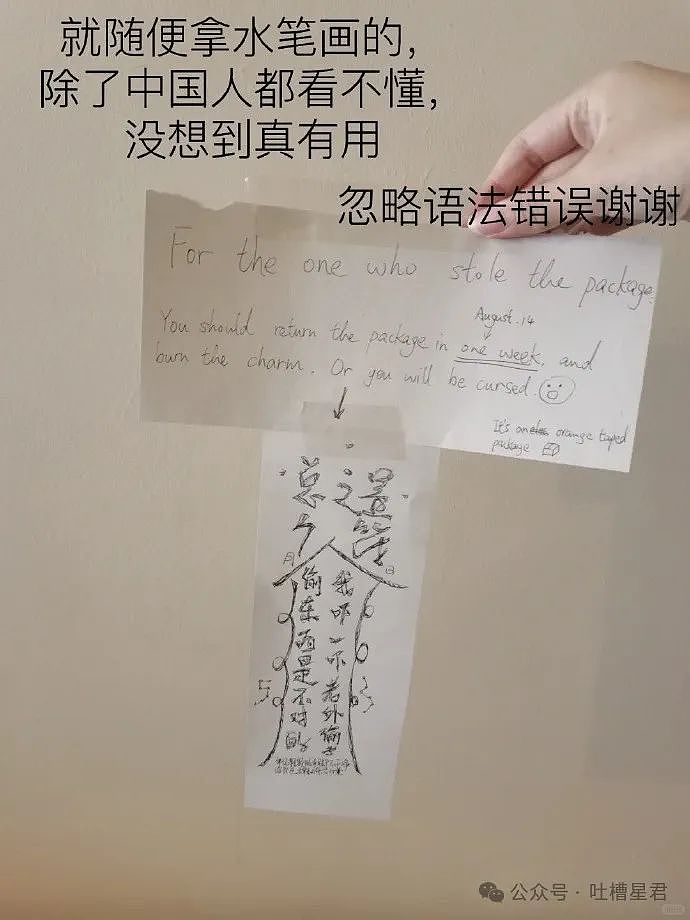 就随便拿水笔画的，
除了中国人都看不懂，
没想到真有用
忽略语法错误谢谢
For the one who stole the package.
August.14
You should return the package in one week. and
burn the charm. Or you will be cursed.
It's orange taped
package
我吓一吓老外偷
偷东西是不对
公众号·吐槽星君